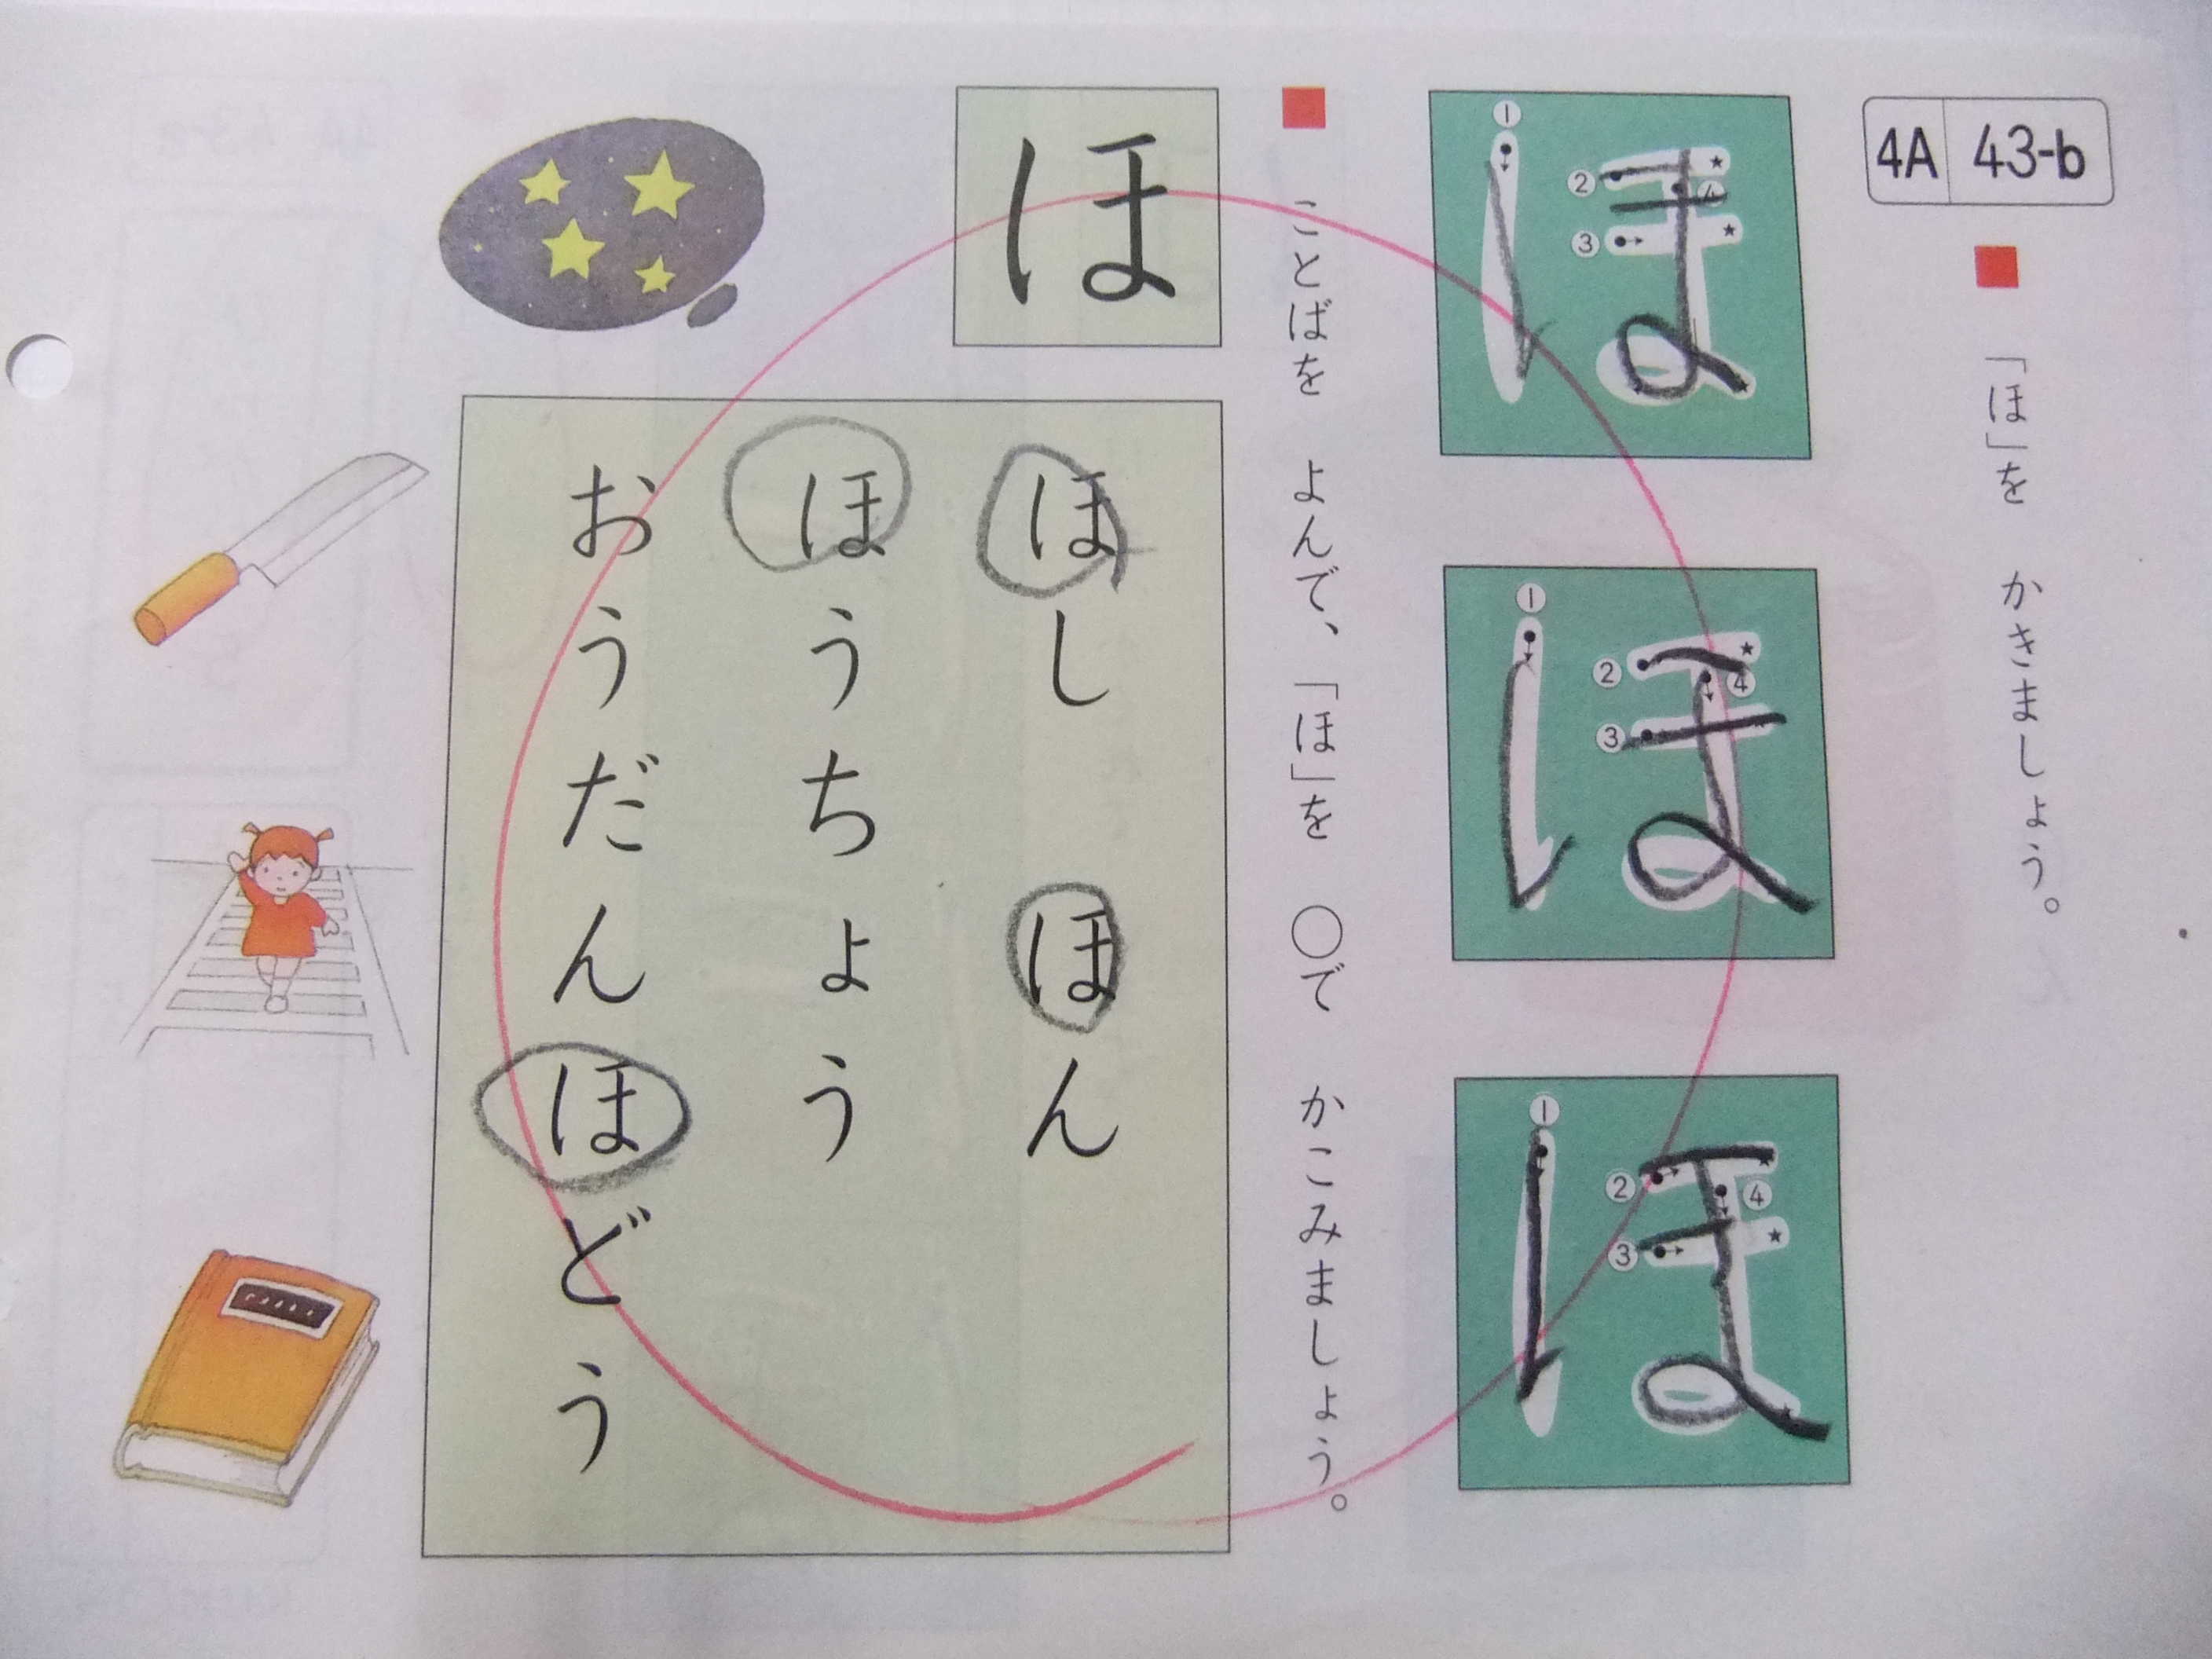 4A 43-b
「ほ」を かきましょう。
① ② ③ ④
ほ
① ② ③ ④
ほ
① ② ③ ④
ほ
ことばを よんで、「ほ」を ○で かこみましょう。
ほ
ほし ほん
ほうちょう
おうだんほどう